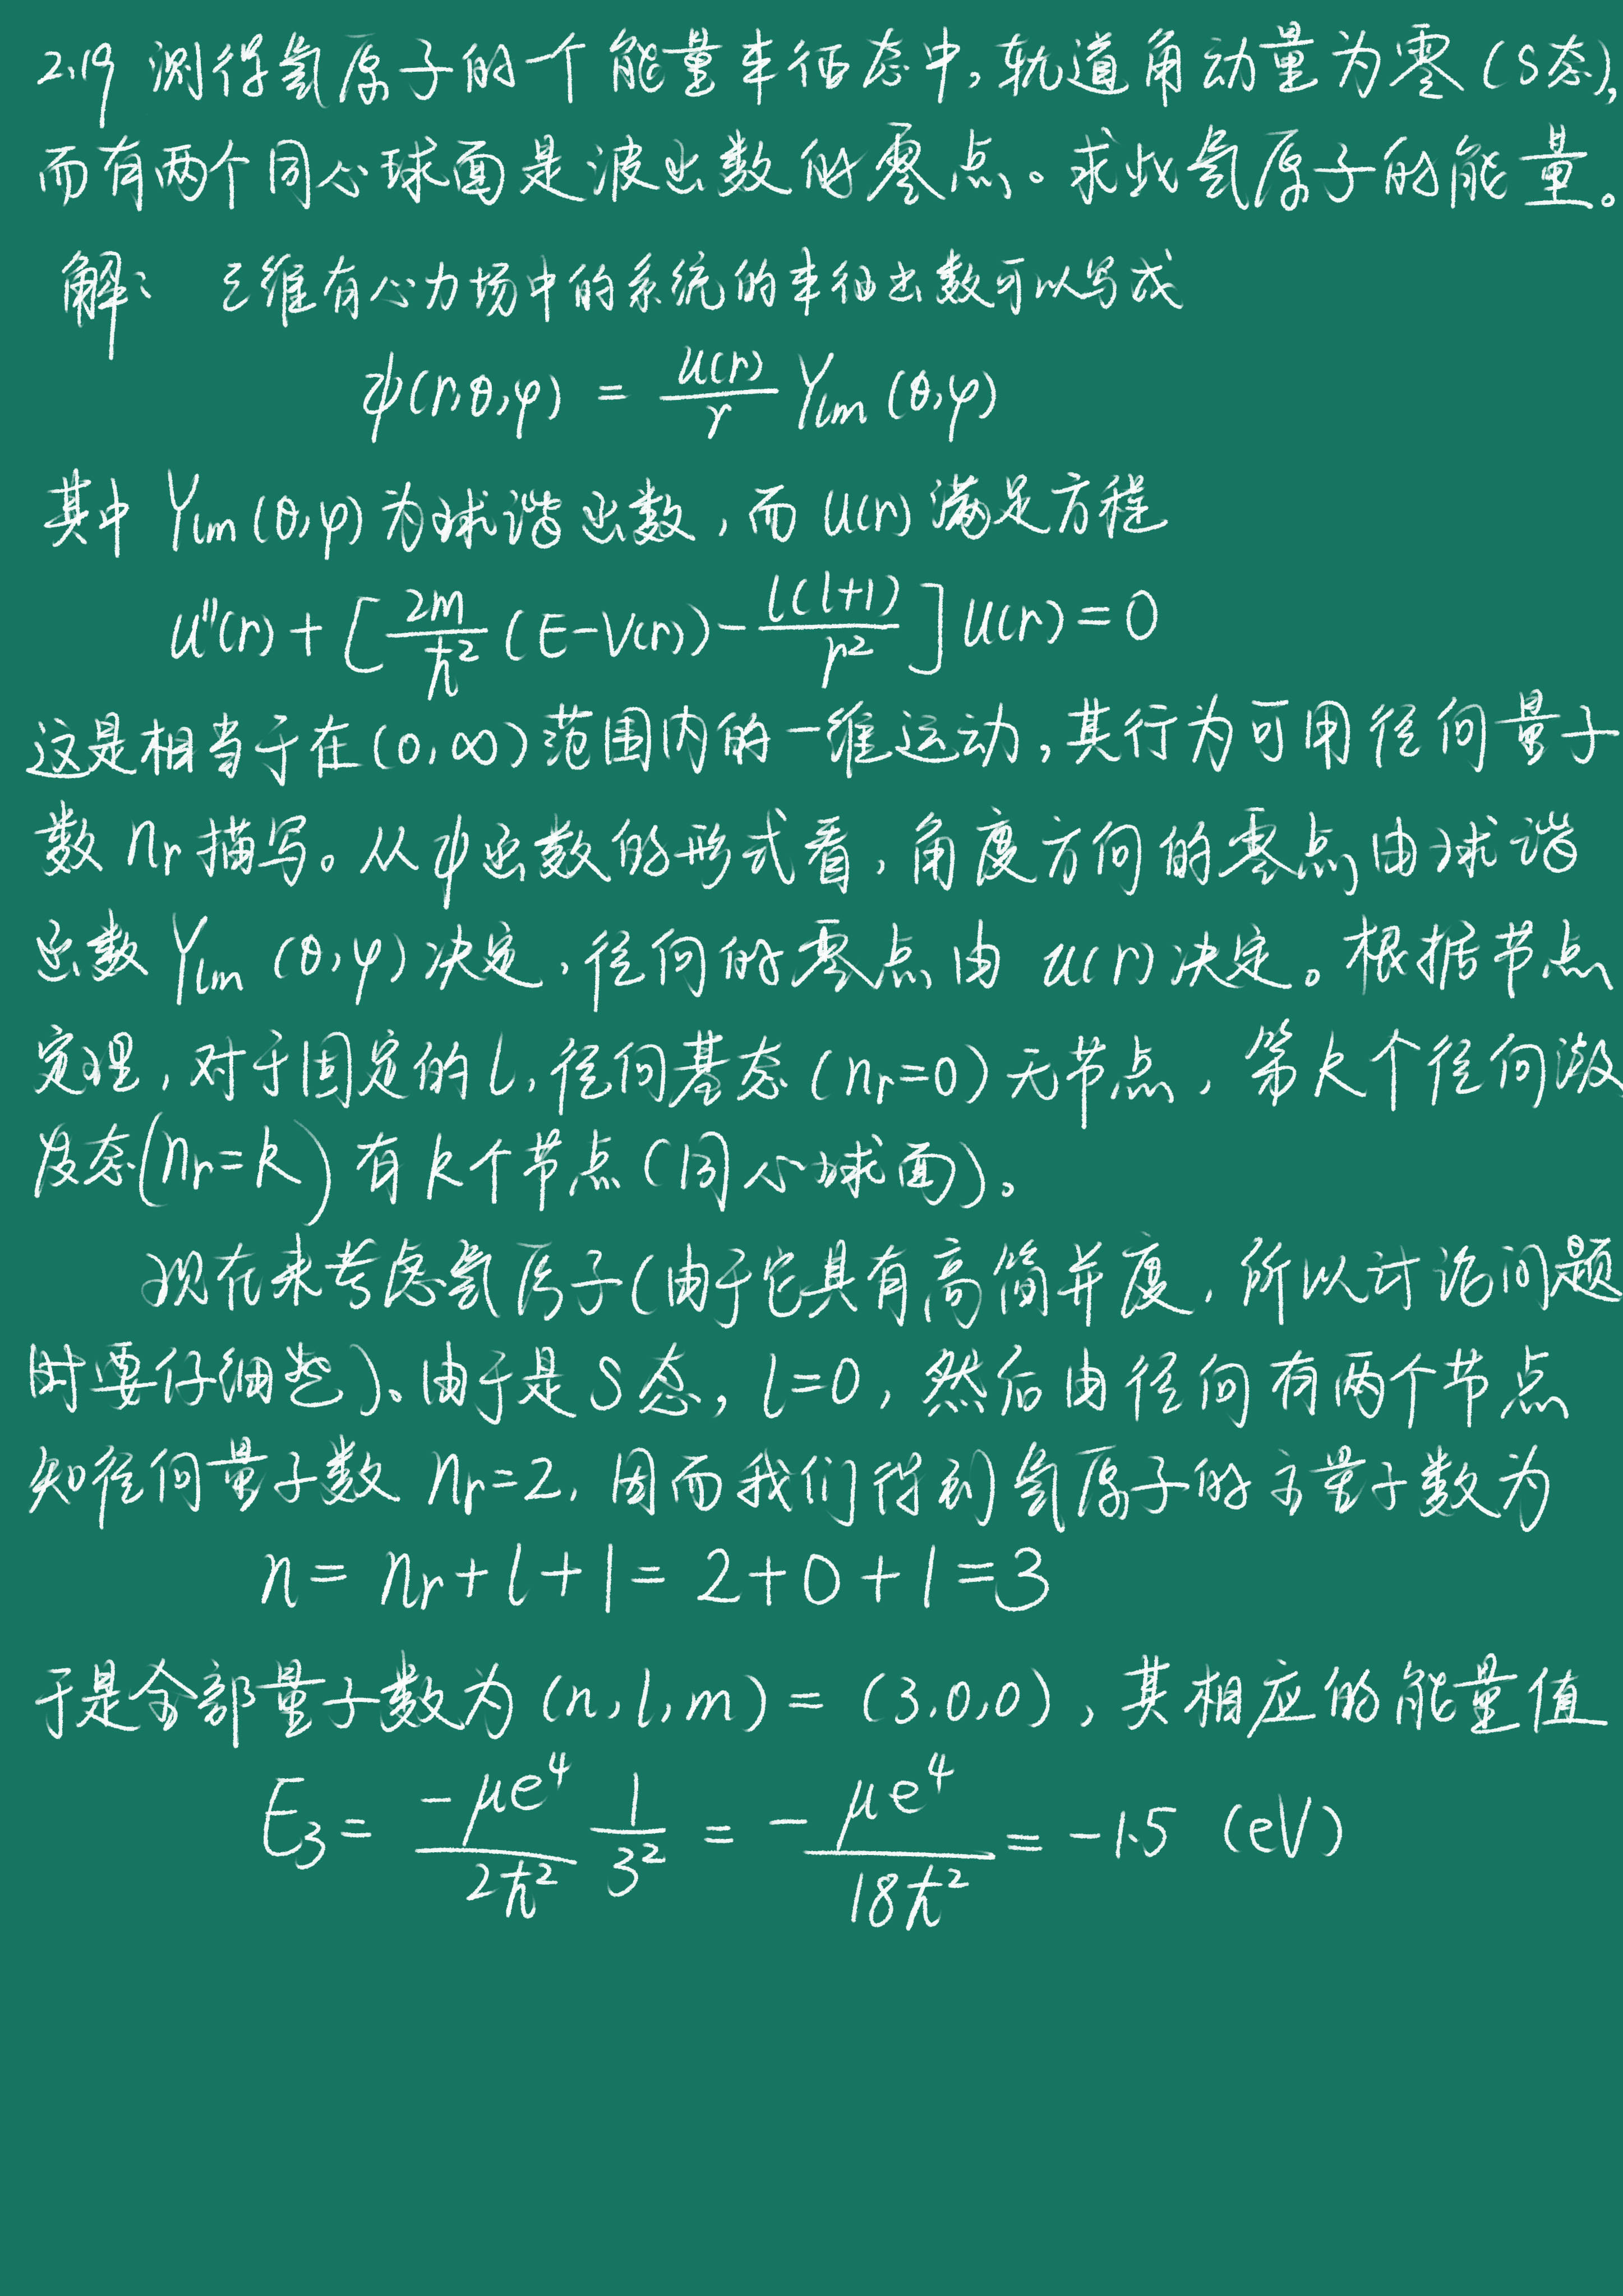 2.19 测得氢原子的一个能量本征态中,轨道角动量为零(S态),
而有两个同心球面是波函数的零点。求此氢原子的能量。
解: 三维有心力场中的系统的本征函数可以写成
ψ(r,θ,φ) = u(r)/r Yₗₘ(θ,φ)
其中 Yₗₘ(θ,φ)为球谐函数,而 u(r)满足方程
u''(r) + [2m/ħ² (E-V(r)) - l(l+1)/r²] u(r) = 0
这是相当于在(0,∞)范围内的一维运动,其行为可用径向量子
数 nᵣ 描写。从ψ函数的形式看,角度方向的零点由球谐
函数 Yₗₘ (θ,φ)决定,径向的零点由 u(r)决定。根据节点
定理,对于固定的 l,径向基态(nᵣ=0)无节点,第k个径向激
发态(nᵣ=k)有k个节点(同心球面)。
现在来考虑氢原子(由于它具有高简并度,所以讨论问题
时要仔细些)。由于是S态,l=0,然后由径向有两个节点
知径向量子数 nᵣ=2,因而我们得到氢原子的主量子数为
n = nᵣ + l + 1 = 2 + 0 + 1 = 3
于是全部量子数为(n,l,m) = (3,0,0),其相应的能量值
E₃ = -μe⁴/2ħ² 1/3² = - μe⁴/18ħ² = -1.5 (eV)